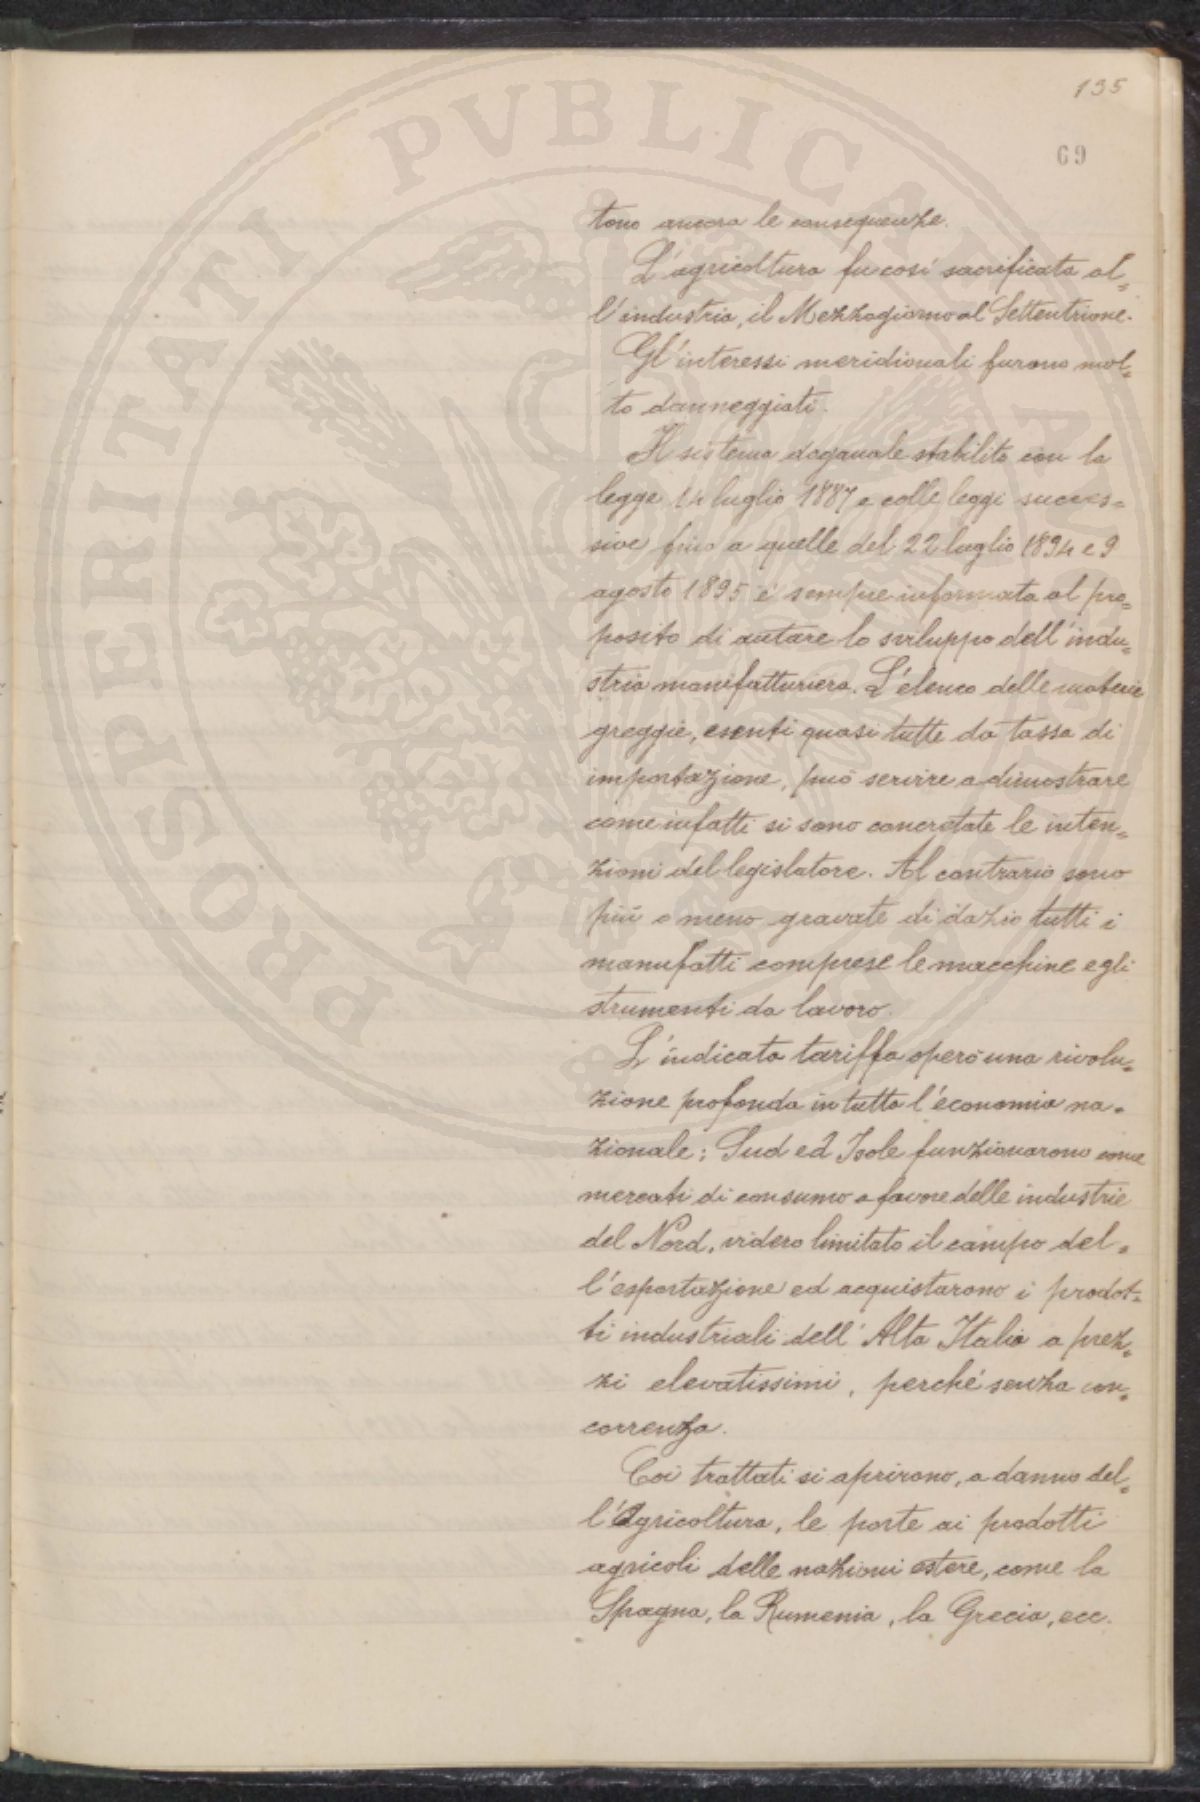 135
69
tono ancora le conseguenze.
L'agricoltura fu così sacrificata al=
l'industria, il Mezzogiorno al Settentrione.
Gl'interessi meridionali furono mol=
to danneggiati.
Il sistema doganale stabilito con la
legge 14 luglio 1887 e colle leggi succes=
sive fino a quelle del 22 luglio 1894 e 9
agosto 1895 è sempre informata al pro=
posito di aiutare lo sviluppo dell'indu=
stria manifatturiera. L'elenco delle materie
greggie, esenti quasi tutte da tassa di
importazione, può servire a dimostrare
come infatti si sono concretate le inten=
zioni del legislatore. Al contrario sono
più o meno gravate di dazio tutti i
manufatti comprese le macchine e gli
strumenti da lavoro.
L'indicata tariffa operò una rivolu=
zione profonda in tutta l'economia na=
zionale: Sud ed Isole funzionarono come
mercati di consumo a favore delle industrie
del Nord, videro limitato il campo del=
l'esportazione ed acquistarono i prodot=
ti industriali dell'Alta Italia a prez=
zi elevatissimi, perché senza con=
correnza.
Coi trattati si aprirono, a danno del=
l'Agricoltura, le porte ai prodotti
agricoli delle nazioni estere, come la
Spagna, la Rumenia, la Grecia, ecc.
PROSPERITATI PVBLICAE AVGENDAE